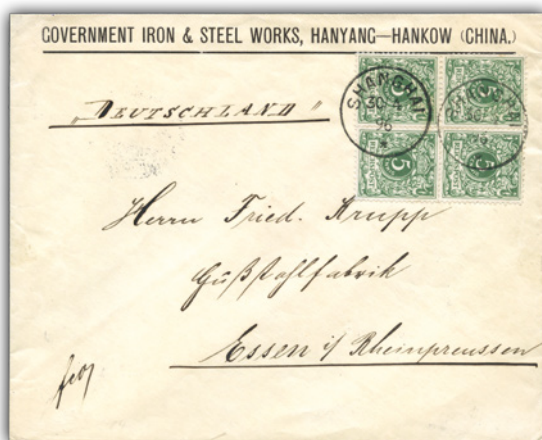 GOVERNMENT IRON & STEEL WORKS, HANYANG—HANKOW (CHINA.)
„DEUTSCHLAND"
SHANGHAI
30 4
96
*
5 5
5 5
Herrn Fried. Krupp
Gußstahlfabrik
Essen i/ Rheinpreussen